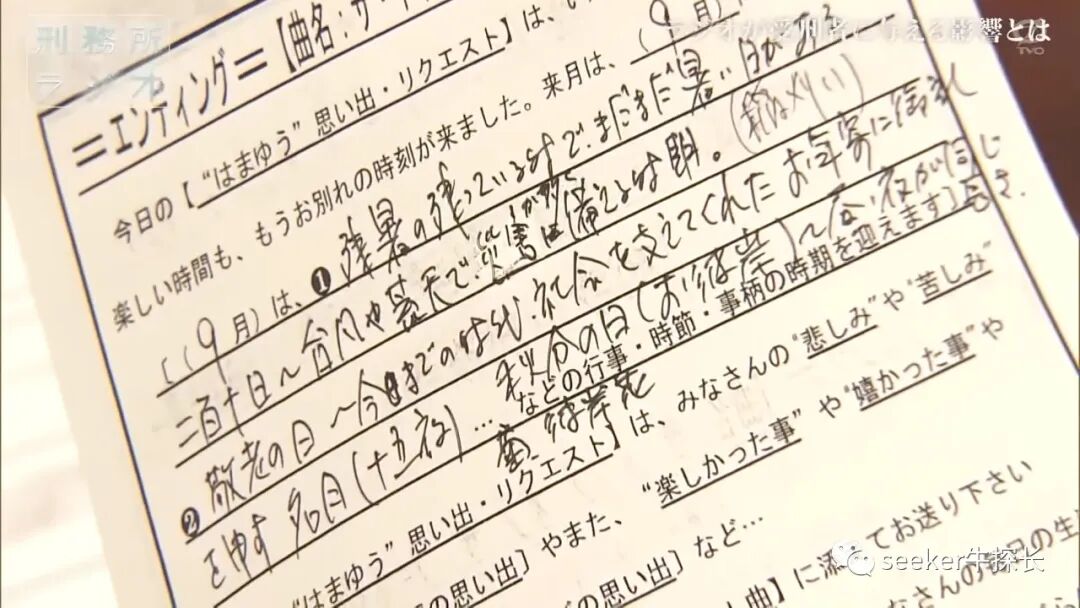 刑務所
ラジオ
ラジオが受刑者に与える影響とは
TVO
＝エンディング＝【曲名：サ・
今日の【“はまゆう”思い出・リクエスト】は、
楽しい時間も、もうお別れの時刻が来ました。来月は、(9月)
((9月)は、❶残暑の残っている時で、まだまだ暑い日がある
二百十日～台風や 天で災害に備える時期。
❷敬老の日～今日までの 社会を支えてくれたお年寄に御礼
を申す 秋分の日(お彼岸)～昼・夜が同じ長さ
名月(十五夜)…などの行事・時節・事柄の時期を迎えます]
“はまゆう”思い出・リクエスト】は、みなさんの“悲しみ”や“苦しみ”
の思い出］やまた、“楽しかった事”や“嬉しかった事”や
の思い出］など…
曲】に添えてお送り下さい
みなさんの毎日の生
seeker牛探长